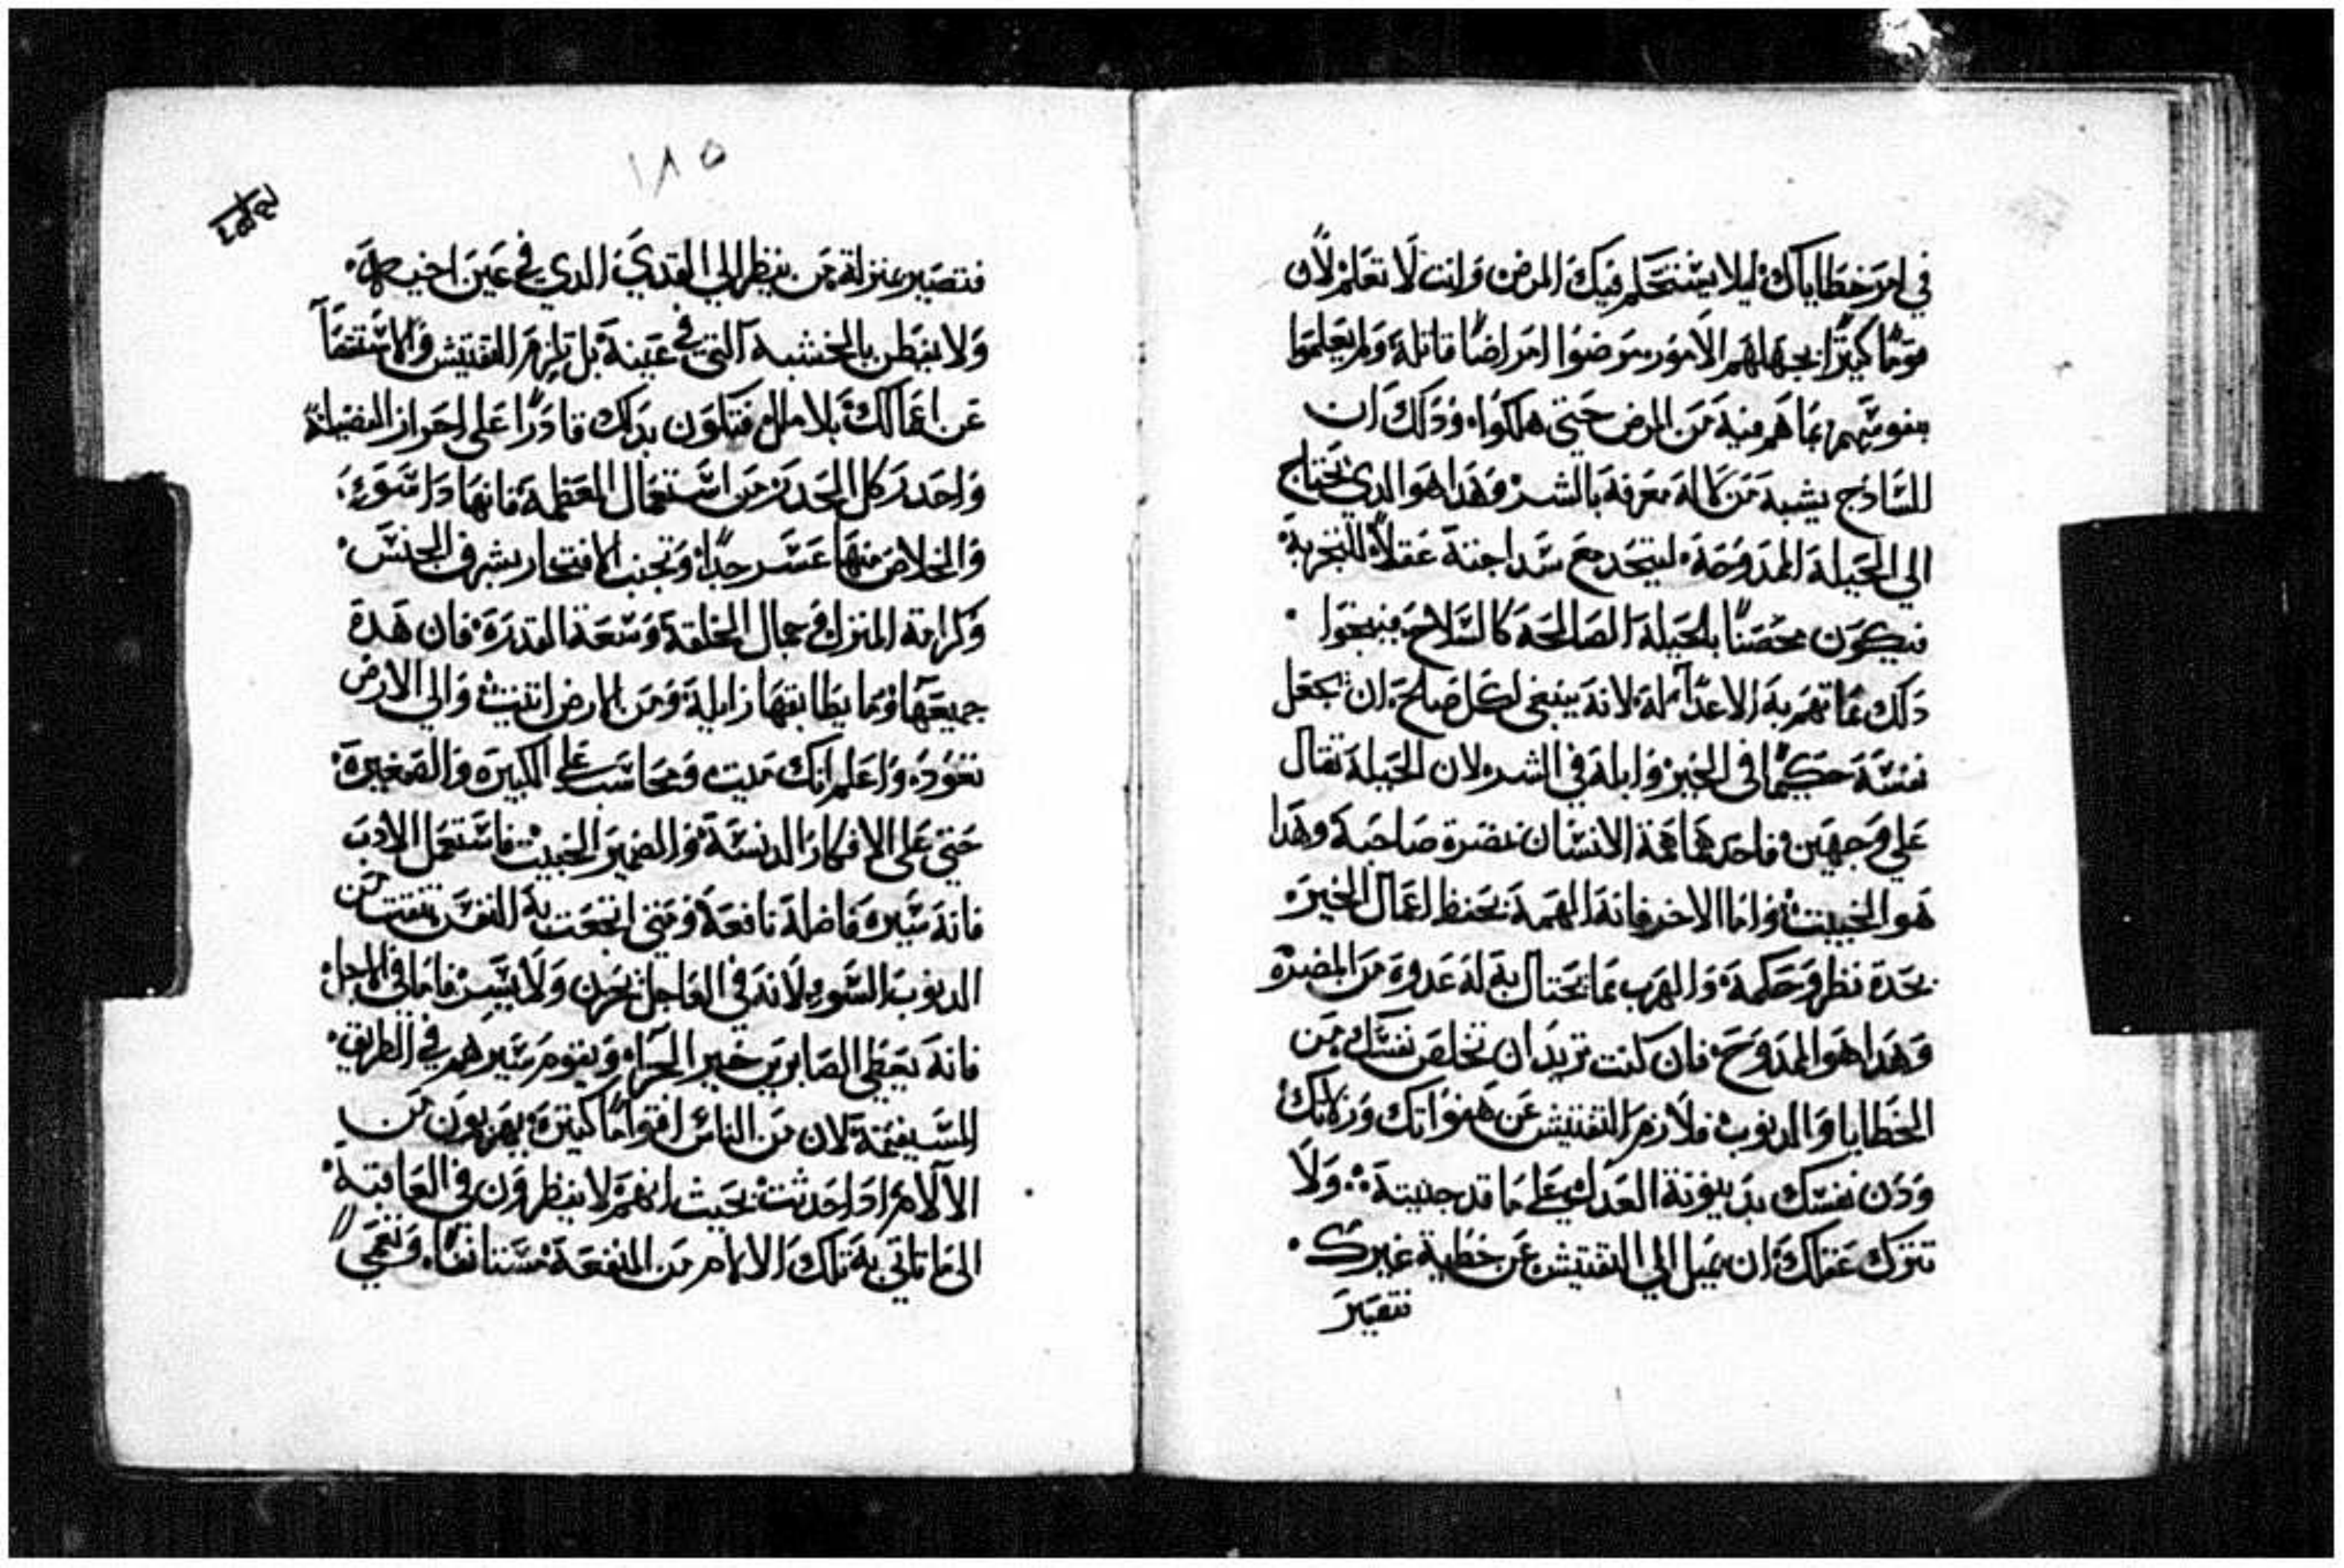 في امر خطاياك ليلا يستحكم فيك المرض وانت لا تعلم لان
قومًا كثيرًا بجهلهم الامور مرضوا امراضًا قاتلة ولم يعلموا
نفوسهم بما هم فيه من المرض حتى هلكوا وذلك ان
الساذج يشبه من لا له معرفة بالشر وهذا هو الذي يحتاج
الي الحيلة الممدوحة ليتخذ مع سداجته عقلاً للتجربة
فيكون محصنًا بالحيلة الصالحة كالسلاح فينجوا
ذلك مما تهم به الاعدآ له لانه ينبغي لكل صالح ان يجعل
نفسه حكيمًا في الخير وابله في الشر لان الحيلة تقال
علي وجهين فاحدهما همة الانسان بمضرة صاحبه وهذا
هو الخبيث واما الاخر فانه الهمة بحفظ اعمال الخير
بحدة نظر وحكمة والهرب مما يحتال به له عدوه من المضرة
وهذا هو الممدوح فان كنت تريد ان تخلص نفسك من
الخطايا والدنوب فلازم التفتيش عن هفواتك وزلاتك
ودن نفسك بدينونة العدل علي ما قد جنيته ولا
تترك عقلك ان يميل الي التفتيش عن خطية غيرك
فتصير
١٨٥
فتصير بمنزلة من ينظر الي القدي الدي في عين اخيه
ولا يفطن بالخشبة التي في عينه بل تلزم التفتيش والاستقصآ
عن اعمالك بلا ملل فتكون بدلك قادرًا على احراز الفضيلة
واحدر كل الحدر من استعمال العظمة فانها دا سوء
والخلاص منها عسر جدًا وتجنب الافتخار بشرف الجنس
وكرامة المنزل وجمال الخلقة وسعة المقدرة فان هده
جميعها وما يطابقها زايلة ومن الارض اتيت والي الارض
تعود واعلم انك ميت وتحاسب علي الكبيرة والصغيرة
حتى على الافكار الدنسة والضمير الخبيث فاستعمل الادب
فانه سيرة فاضلة نافعة ومتى انجعت به النفس تنقت من
الدنوب السوء لانه في العاجل يحزن ولا يسر فاما في الاجل
فانه يعطي الصابرين خير الجزآ ويقوم سيرهم في الطريق
المستقيمة لان من الناس اقوامًا كثيرة يهربون من
الآلام ادا حدثت بحيث انهم لا ينظرون في العاقبة
الى ما تاتي به تلك الالام من المنفعة مستانفًا ومتى